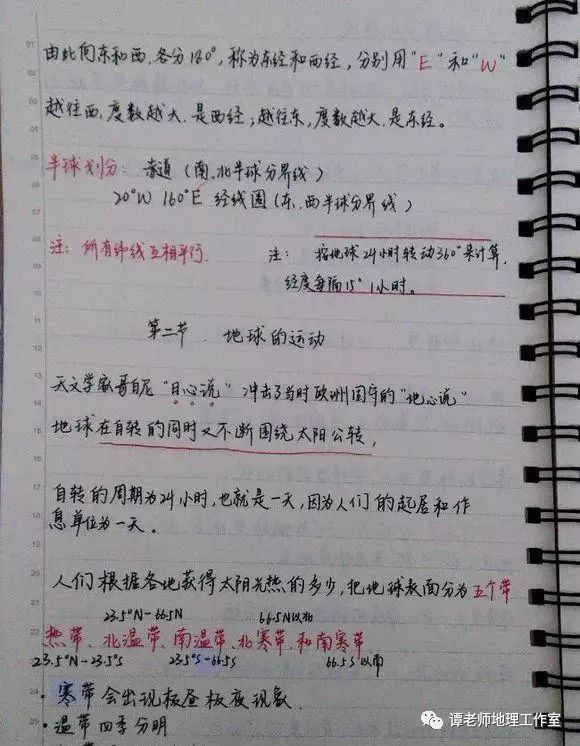 由此向东和西,各分180°,称为东经和西经,分别用"E"和"W"
越往西,度数越大.是西经;越往东,度数越大.是东经。
半球划分: 赤道(南.北半球分界线)
20°W 160°E 经线圈(东、西半球分界线)
注: 所有纬线互相平行.
注: 按地球24小时转动360°来计算,
经度每隔15° 1小时。
第二节 . 地球的运动
天文学家哥白尼"日心说"冲击了当时欧洲固守的"地心说"
地球在自转的同时又不断围绕太阳公转,
自转的周期为24小时,也就是一天,因为人们的起居和作
息单位为一天。
人们根据各地获得太阳光热的多少,把地球表面分为五个带
23.5°N-66.5N 66.5N以北
热带、北温带、南温带、北寒带、和南寒带
23.5°N-23.5°S 23.5°S-66.5S 66.5S以南
· 寒带会出现极昼极夜现象.
· 温带四季分明
谭老师地理工作室